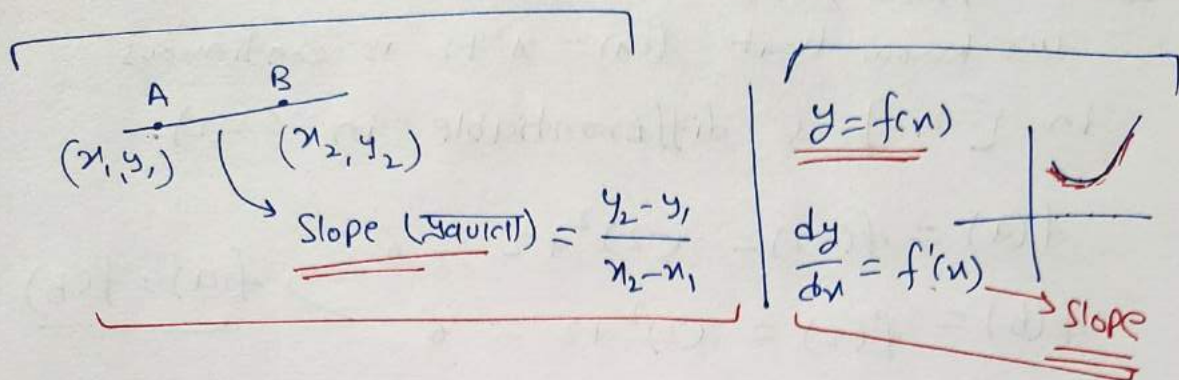 A B
(x₁, y₁) (x₂, y₂)
Slope (प्रवणता) = y₂ - y₁ / x₂ - x₁
y = f(x)
dy/dx = f'(x) → Slope